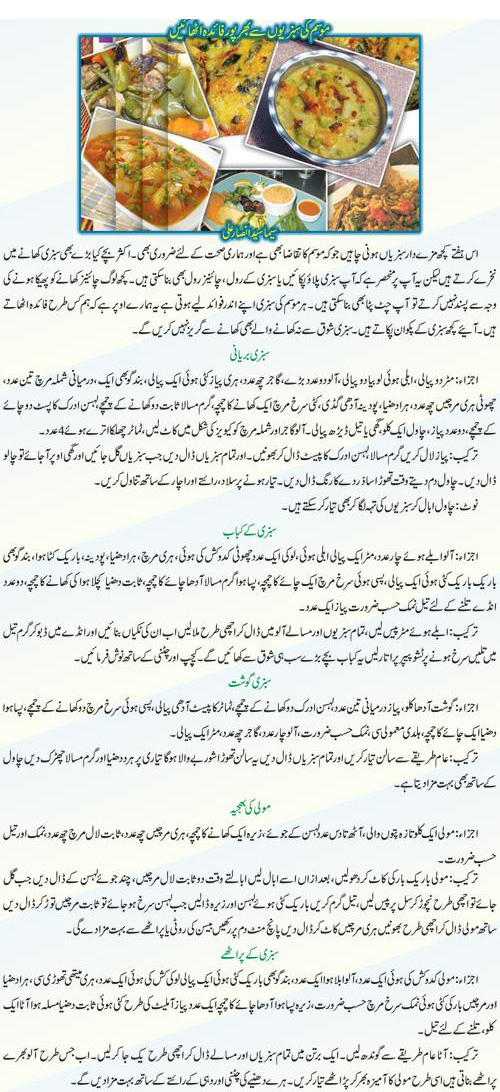 موسم کی سبزیوں سے بھرپور فائدہ اٹھائیں
سیما سید انصار علی
اس ہفتے کچھ مزے دار سبزیاں ہونی چاہیں جو کہ موسم کا تقاضا بھی ہے اور ہماری صحت کے لئے ضروری بھی۔ اکثر بچے کیا بڑے بھی سبزی کھانے میں
نخرے کرتے ہیں لیکن یہ آپ پر منحصر ہے کہ آپ سبزی پلاؤ پکائیں یا سبزی کے رول، چائنیز رول بھی بنا سکتی ہیں۔ کچھ لوگ چائنیز کھانے کو پھیکا ہونے کی
وجہ سے پسند نہیں کرتے تو آپ چٹ پٹا بھی بنا سکتی ہیں۔ ہر موسم کی سبزی اپنے اندر فوائد لیے ہوتی ہے یہ ہمارے اوپر ہے کہ ہم کس طرح فائدہ اٹھاتے
ہیں۔ آیئے کچھ سبزی کے پکوان پکاتے ہیں۔ سبزی شوق سے نہ کھانے والے بھی کھانے سے گریز نہیں کریں گے۔
سبزی بریانی
اجزاء: مٹر دو پیالی، ابلی ہوئی لوبیا دو پیالی، آلو دو عدد بڑے، گاجر چھ عدد، ہری پیاز کٹی ہوئی ایک پیالی، بند گوبھی ایک، درمیانی شملہ مرچ تین عدد،
چھوٹی ہری مرچیں چھ عدد، ہرا دھنیا، پودینہ آدھی گڈی، کٹی سرخ مرچ ایک کھانے کا چمچہ، گرم مسالا ثابت دو کھانے کے چمچے، لہسن ادرک کا پسٹ دو چائے
کے چمچے، دو عدد پیاز، چاول ایک کلو، گھی یا تیل ڈیڑھ پیالی۔ آلو گاجر اور شملہ مرچ کو کیوبز کی شکل میں کاٹ لیں، ٹماٹر چھلکا اترے ہوئے 4 عدد۔
ترکیب: پیاز لال کریں گرم مسالا لہسن ادرک کا پیسٹ ڈال کر بھونیں۔ اور تمام سبزیاں ڈال دیں جب سبزیاں گل جائیں اور گھی اوپر آجائے تو چاول
ڈال دیں۔ چاول دم دیتے وقت تھوڑا سا زردے کا رنگ ڈال دیں۔ تیار ہونے پر سلاد، رائتے اور اچار کے ساتھ تناول کریں۔
نوٹ: چاول ابال کر سبزیوں کی تہہ لگا کر بھی تیار کر سکتے ہیں۔
سبزی کے کباب
اجزاء: آلو ابلے ہوئے چار عدد، مٹر ایک پیالی ابلی ہوئی، لوکی ایک عدد چھوٹی کدوکش کی ہوئی، ہری مرچ، ہرا دھنیا، پودینہ، باریک کٹا ہوا، بند گوبھی
باریک باریک کٹی ہوئی ایک پیالی، پسی ہوئی سرخ مرچ ایک چائے کا چمچہ، پسا ہوا گرم مسالا آدھا چائے کا چمچہ، ثابت دھنیا کچلا ہوا کی کھانے کا چمچہ، دو عدد
انڈے تلنے کے لئے تیل نمک حسب ضرورت پیاز ایک عدد۔
ترکیب: ابلے ہوئے مٹر پیس لیں، تمام سبزیوں اور مسالے آلو میں ڈال کر اچھی طرح ملا لیں اب ان کی ٹکیاں بنائیں اور انڈے میں ڈبو کر گرم تیل
میں تلیں سرخ ہونے پر ٹشو پیپر پر اتار لیں یہ کباب بچے بڑے سب ہی شوق سے کھائیں گے۔ کیچپ اور چٹنی کے ساتھ نوش فرمائیں۔
سبزی گوشت
اجزاء: گوشت آدھا کلو، پیاز درمیانی تین عدد لہسن ادرک دو کھانے کے چمچے، ٹماٹر کا پیسٹ آدھی پیالی، پسی ہوئی سرخ مرچ دو کھانے کے چمچے، پسا ہوا
دھنیا ایک چائے کا چمچہ، ہلدی معمولی سی، نمک حسب ضرورت، آلو چار عدد، گاجر چھ عدد، مٹر ایک پیالی۔
ترکیب: عام طریقے سے سالن تیار کریں اور تمام سبزیاں ڈال دیں یہ سالن تھوڑا شوربے والا ہوگا تیاری پر ہر دھنیا اور گرم مسالا چھڑک دیں چاول
کے ساتھ بھی بہت مزا دیتا ہے۔
مولی کی بھجیہ
اجزاء: مولی ایک کلو تازہ پتوں والی، آٹھ تا دس عدد لہسن کے جوئے، زیرہ ایک کھانے کا چمچہ، ہری مرچیں چھ عدد، ثابت لال مرچ چھ عدد، نمک اور تیل
حسب ضرورت۔
ترکیب: مولی باریک باریک کاٹ کر دھولیں، بعد ازاں اسے ابال لیں ابالتے وقت دو ثابت لال مرچیں، چند جوئے لہسن کے ڈال دیں جب گل
جائے تو اچھی طرح نچوڑ کر سل پر پیس لیں، تیل گرم کریں باریک کٹی ہوئے لہسن اور زیرہ ڈالیں جب لہسن سرخ ہو جائے تو ثابت مرچیں توڑ کر ڈال دیں
ساتھ مولی ڈال کر اچھی طرح بھونیں ہری مرچیں کاٹ کر ڈال دیں پانچ منٹ دم پر رکھیں بیسن کی روٹی یا پراٹھے سے بہت مزا دے گی۔
سبزی کے پراٹھے
اجزاء: مولی کدوکش کی ہوئی ایک عدد، آلو ابلا ہوا ایک عدد، بند گوبھی باریک کٹی ہوئی ایک پیالی لوکی کش کی ہوئی ایک عدد، ہری میتھی تھوڑی سی، ہرا دھنیا
اور مرچیں باریک کٹی ہوئی نمک سرخ مرچ حسب ضرورت، زیرہ پسا ہوا آدھا چائے کا چمچا ایک عدد پیاز آملیٹ کی طرح کٹی ہوئی ثابت دھنیا مسلہ ہوا آٹا ایک
کلو، تلنے کے لئے تیل۔
ترکیب: آٹا عام طریقے سے گوندھ لیں۔ ایک برتن میں تمام سبزیاں اور مسالے ڈال کر اچھی طرح یک جا کر لیں۔ اب جس طرح آلو بھرے
پراٹھے بناتی ہیں اسی طرح مولی کا آمیزہ بھر کر پراٹھے تیار کریں۔ ہرے دھنیے کی چٹنی اور دہی کے رائتے کے ساتھ بہت مزا دیں گے۔